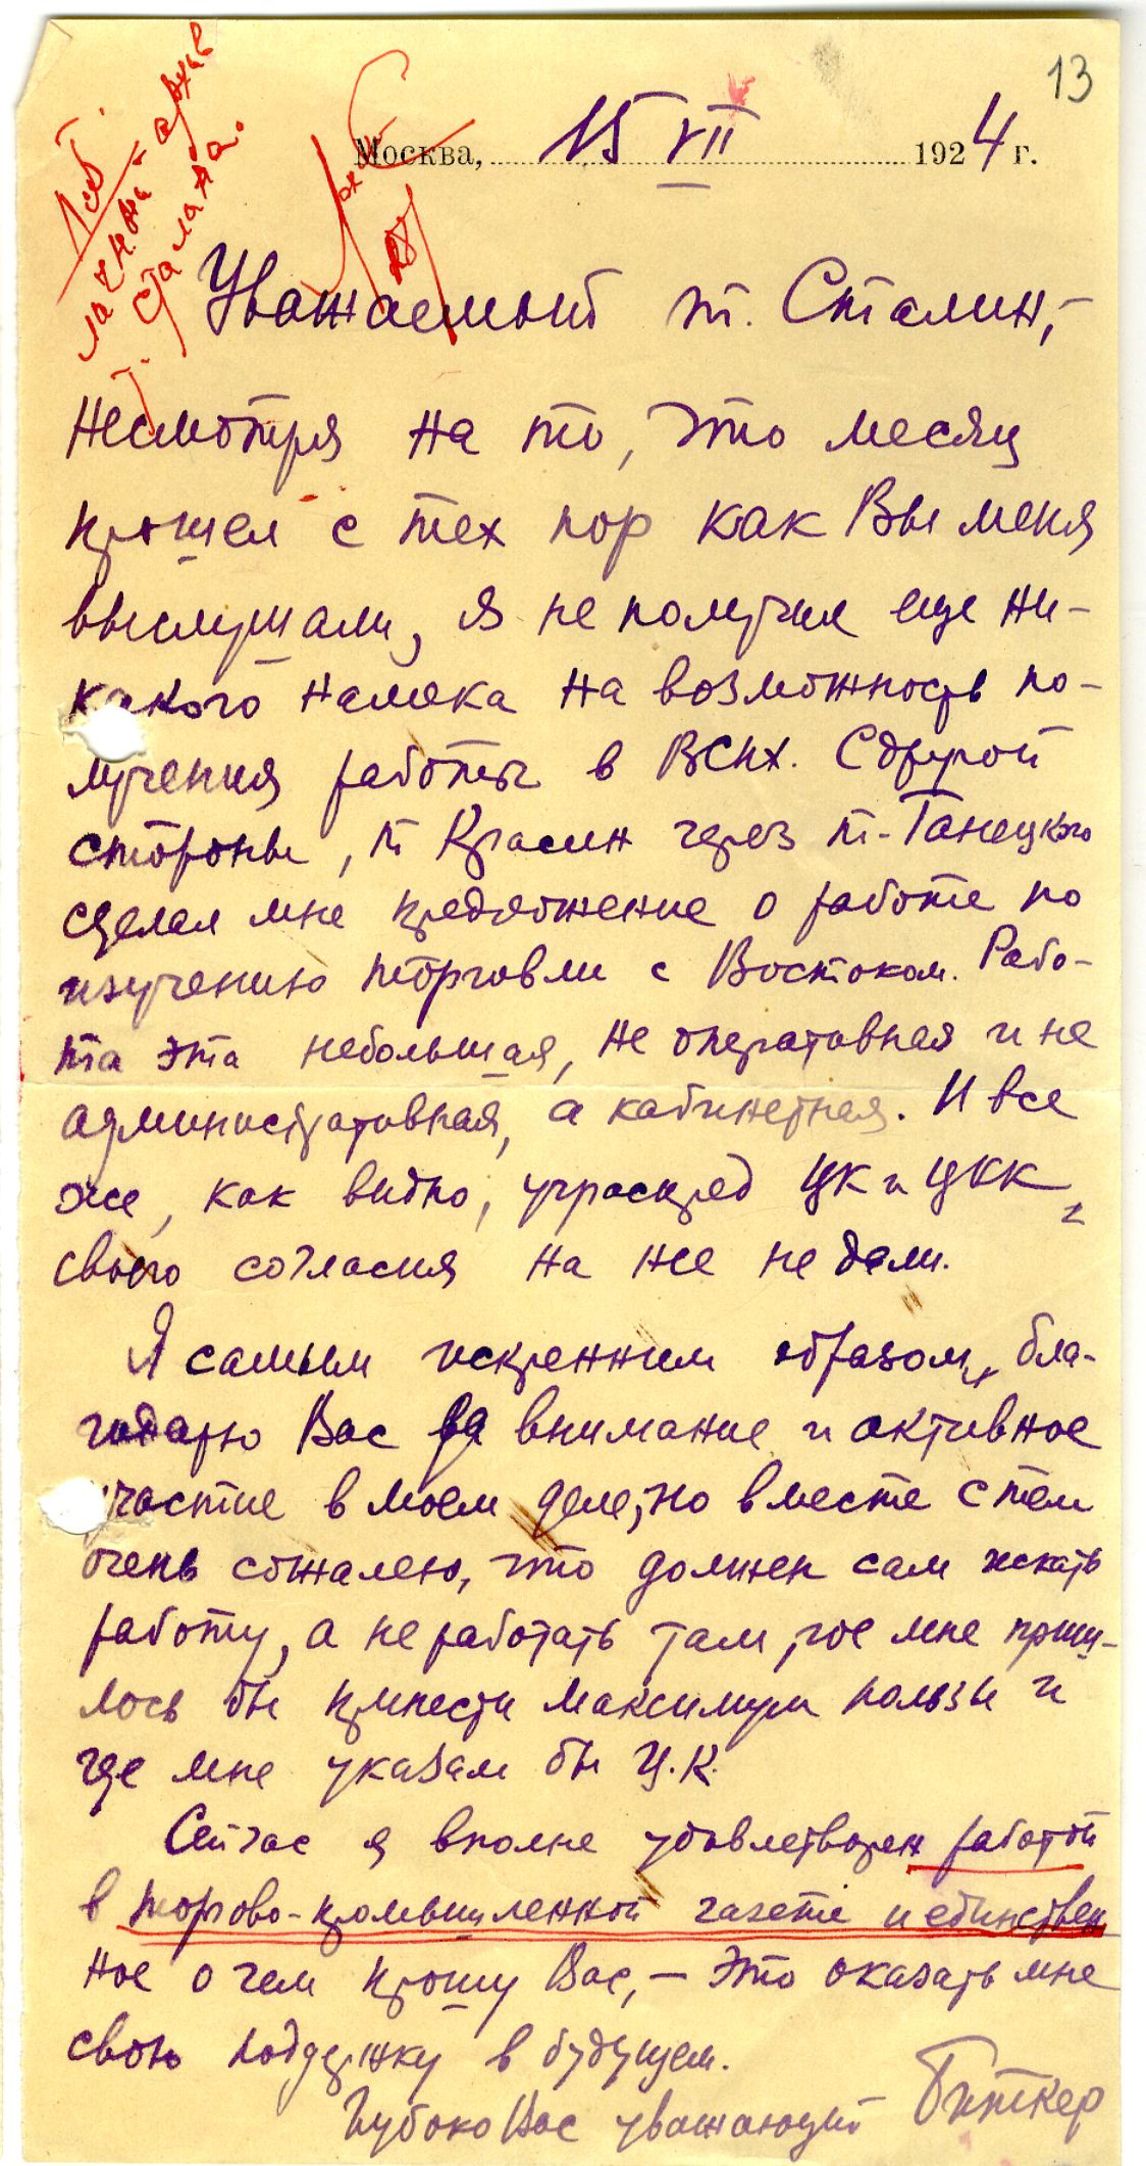 13
Москва, 15 VII 1924 г.
личный архив
т. Сталина.
Уважаемый т. Сталин,-
несмотря на то, что месяц
прошел с тех пор как Вы меня
выслушали, я не получил еще ни-
какого намека на возможность по-
лучения работы в ВСНХ. С другой
стороны, т Красин через т. Ганецкого
сделал мне предложение о работе по
изучению торговли с Востоком. Рабо-
та эта небольшая, не оперативная и не
административная, а кабинетная. И все
же, как видно, учраспред ЦК и ЦКК
своего согласия на нее не дали.
Я самым искренним образом благ-
годарю Вас за внимание и активное
участие в моем деле, но вместе с тем
очень сожалею, что должен сам искать
работу, а не работать там, где мне приш-
лось бы принести максимум пользы и
где мне указал бы Ц.К.
Сейчас я вполне удовлетворен работой
в торгово-промышленной газете и единствен
ное о чем прошу Вас, — это оказать мне
свою поддержку в будущем.
Глубоко Вас уважающий Биткер